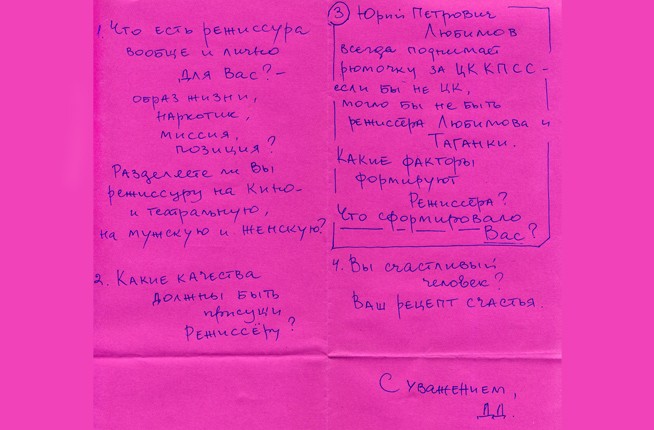 1. Что есть режиссура
вообще и лично
для Вас? –
образ жизни,
наркотик,
миссия,
позиция?
Разделяете ли Вы
режиссуру на кино-
и театральную,
на мужскую и женскую?
2. Какие качества
должны быть
присущи
Режиссёру?
3 Юрий Петрович
Любимов
всегда поднимает
рюмочку за ЦК КПСС -
если бы не ЦК,
могло бы не быть
режиссёра Любимова и
Таганки.
Какие факторы
формируют
Режиссёра?
Что сформировало
Вас?
4. Вы счастливый
человек?
Ваш рецепт счастья.
С уважением,
ДД.